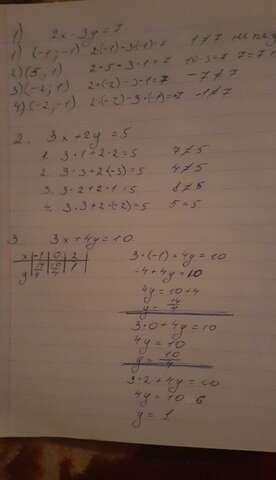 1) 2x - 3y = 7
1) (-1; -1) 2·(-1) - 3·(-1) = 7 1 ≠ 7
2) (5; 1) 2·5 - 3·1 = 7 10 - 3 = 7 7 = 7
3) (-2; 1) 2·(-2) - 3·1 = 7 -7 ≠ 7
4) (-2; -1) 2·(-2) - 3·(-1) = 7 -1 ≠ 7
2. 3x + 2y = 5
1. 3·1 + 2·2 = 5 7 ≠ 5
2. 3·3 + 2·(-3) = 5 4 ≠ 5
3. 3·2 + 2·1 = 5 8 ≠ 5
4. 3·3 + 2·(-2) = 5 5 = 5
3. 3x + 4y = 10
x -1 0 2
y 14/4 10/4 1
3·(-1) + 4y = 10
-4 + 4y = 10
4y = 10 + 4
y = 14/4
3·0 + 4y = 10
4y = 10
y = 10/4
3·2 + 4y = 10
4y = 10 6
y = 1